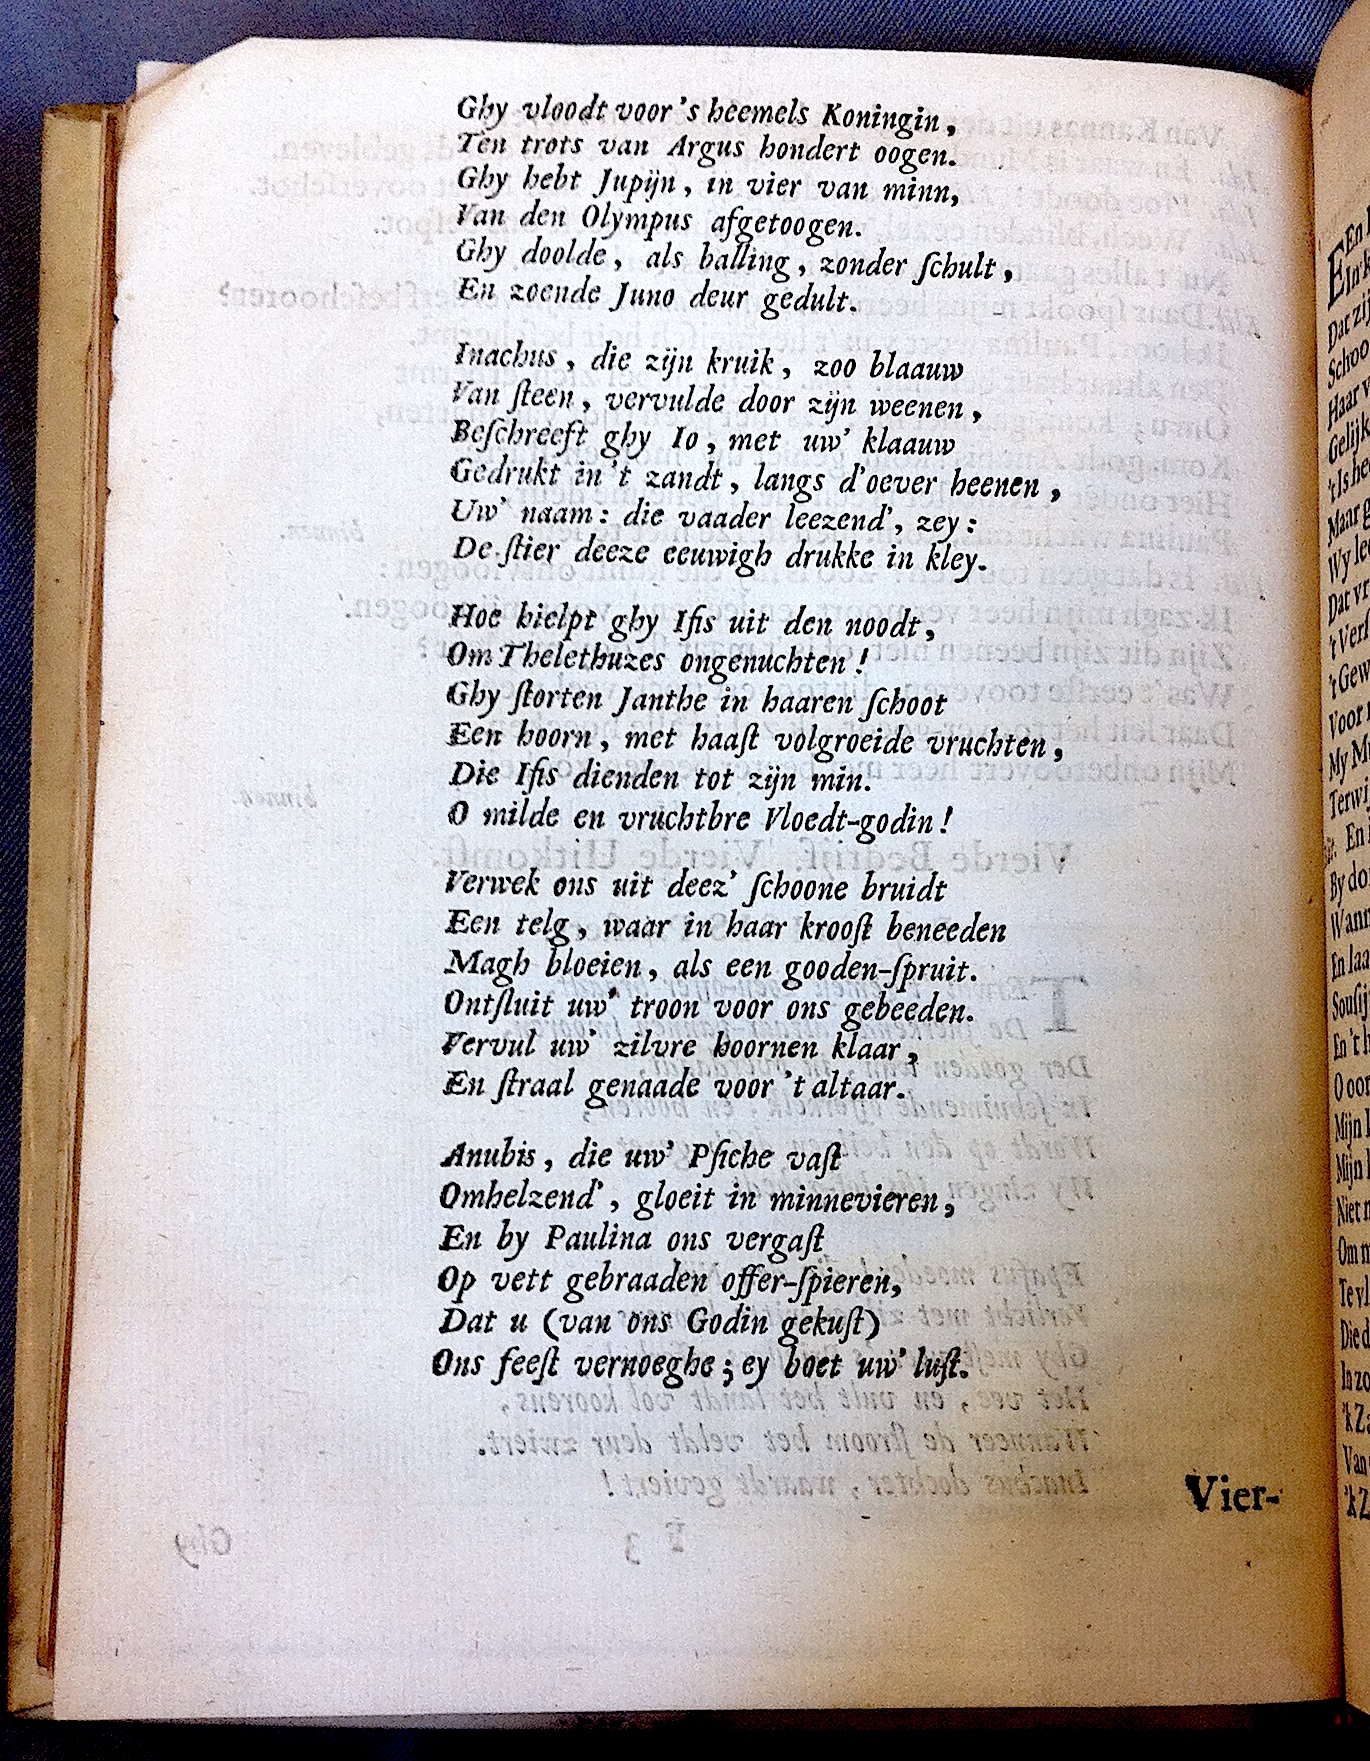 Ghy vloodt voor 's heemels Koningin,
Ten trots van Argus hondert oogen.
Ghy hebt Jupijn, in vier van minn,
Van den Olympus afgetoogen.
Ghy doolde, als balling, zonder ſchult,
En zoende Juno deur gedult.

Inachus, die zijn kruik, zoo blaauw
Van ſteen, vervulde door zijn weenen,
Beſchreeft ghy Io, met uw' klaauw
Gedrukt in 't zandt, langs d'oever heenen,
Uw' naam: die vaader leezend', zey:
De ſtier deeze eeuwigh drukke in kley.

Hoe hielpt ghy Iſis uit den noodt,
Om Thelethuzes ongenuchten!
Ghy ſtorten Janthe in haaren ſchoot
Een hoorn, met haaſt volgroeide vruchten,
Die Iſis dienden tot zijn min.
O milde en vruchtbre Vloedt-godin!

Verwek ons uit deez' ſchoone bruidt
Een telg, waar in haar krooſt beneeden
Magh bloeien, als een gooden-ſpruit.
Ontſluit uw' troon voor ons gebeeden.
Vervul uw' zilvre hoornen klaar,
En ſtraal genaade voor 't altaar.

Anubis, die uw' Pſiche vaſt
Omhelzend', gloeit in minnevieren,
En by Paulina ons vergaſt
Op vett gebraaden offer-ſpieren,
Dat u (van ons Godin gekuſt)
Ons feeſt vernoeghe; ey boet uw' luſt.

Vier-